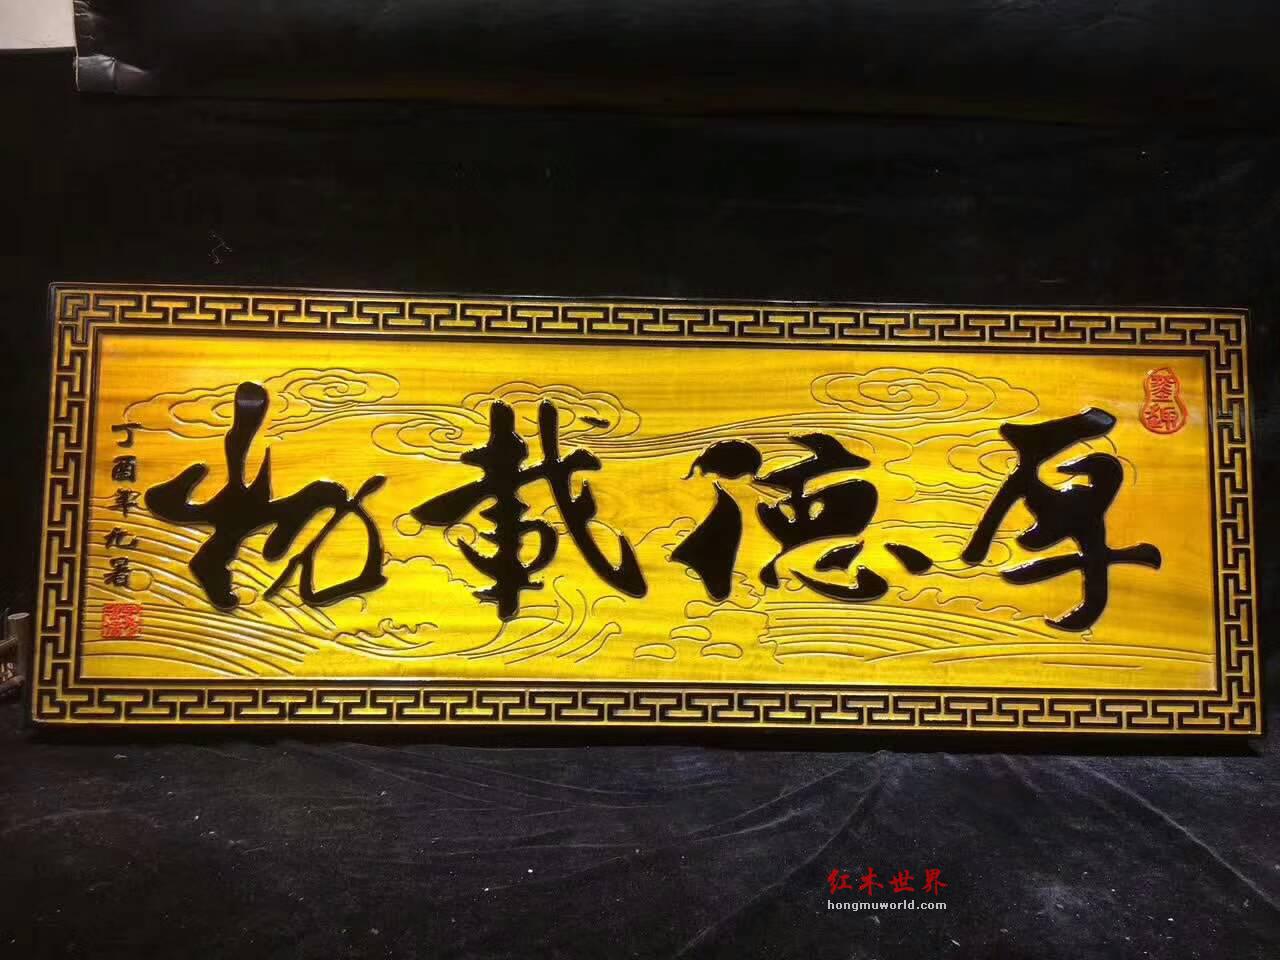 厚德載物
丁酉年九署
红木世界
hongmuworld.com